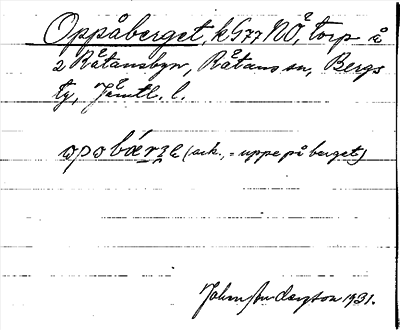 Oppåberget, kG77NÖ, torp å
2 Råtansbyn, Råtans sn, Bergs
tg, Jämtl. l.
opobǽrʒe (ack., = uppe på berget)
John Anderzson 1931.